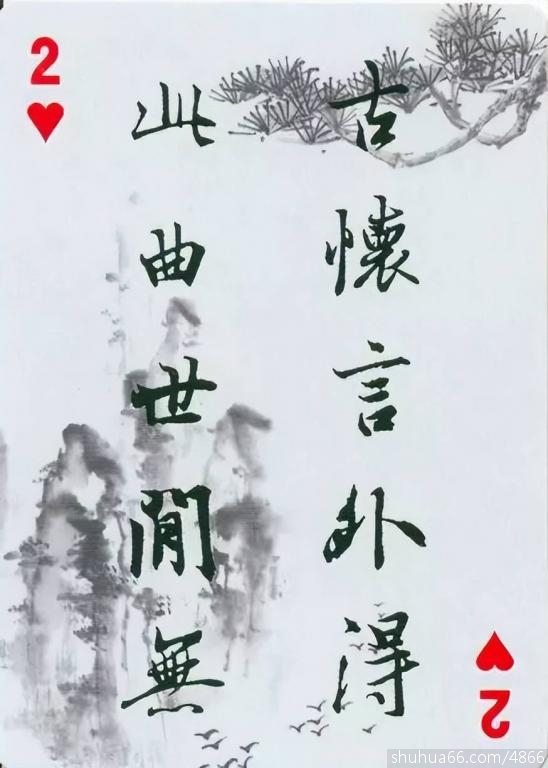 2
古懷言外得
此曲世間無
2
shuhua66.com/4866